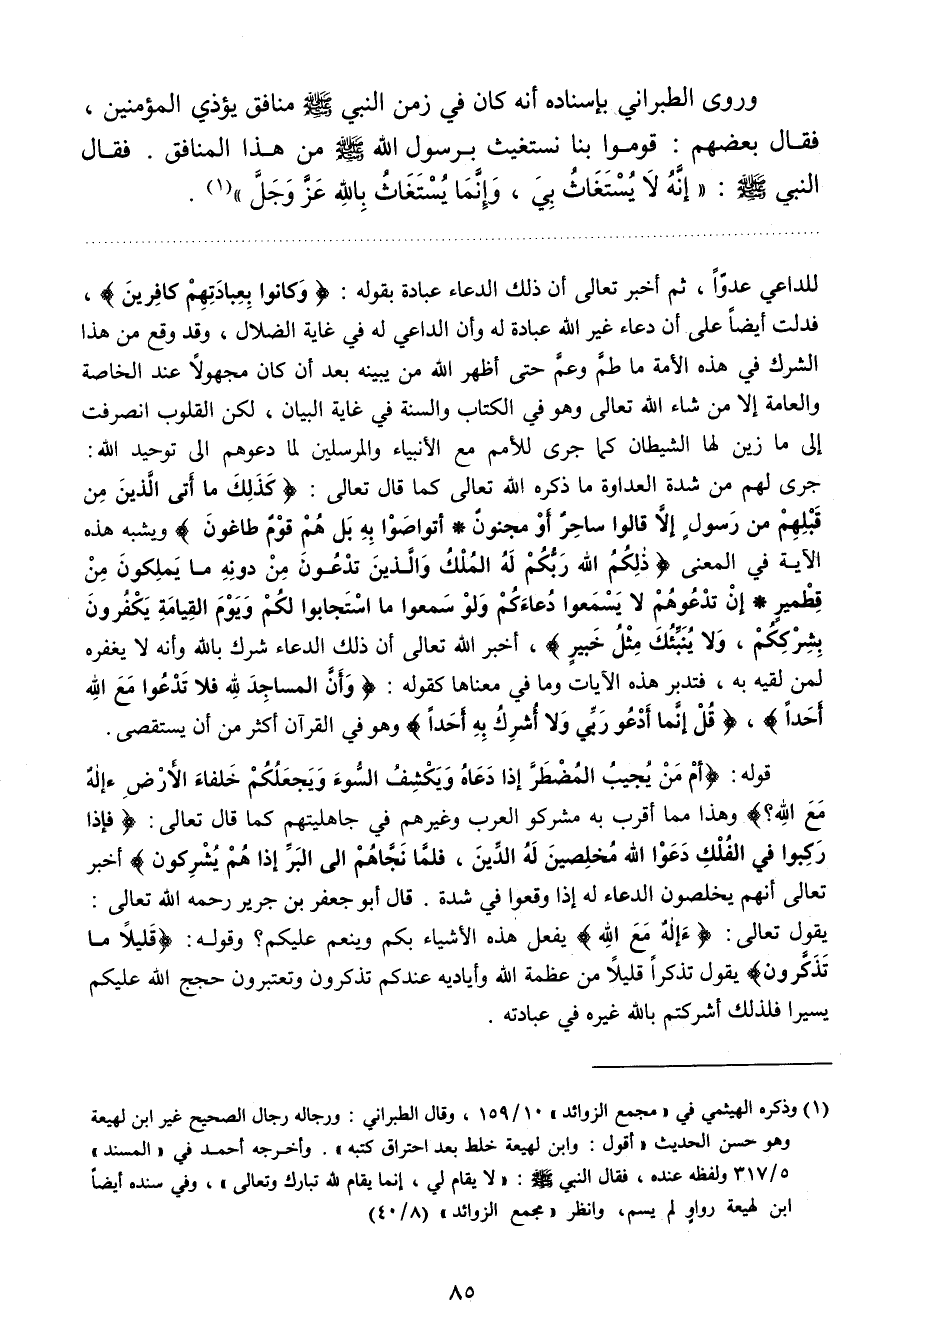 وروى الطبراني بإسناده أنه كان في زمن النبي ﷺ منافق يؤذي المؤمنين ،
فقـال بعضهم : قومـوا بنا نستغيث بـرسول الله ﷺ من هـذا المنافق . فقـال
النبي ﷺ : « إنَّهُ لَا يُسْتَغَاثُ بِيَ ، وَإِنَّمَا يُسْتَغَاثُ بِاللهِ عَزَّ وَجَلَّ »(١) .
للداعي عدوّاً ، ثم أخبر تعالى أن ذلك الدعاء عبادة بقوله : ﴿ وَكانوا بِعِبادَتِهِمْ كافِرينَ ﴾ ،
فدلت أيضاً على أن دعاء غير الله عبادة له وأن الداعي له في غاية الضلال ، وقد وقع من هذا
الشرك في هذه الأمة ما طمَّ وعمَّ حتى أظهر الله من يبينه بعد أن كان مجهولاً عند الخاصة
والعامة إلا من شاء الله تعالى وهو في الكتاب والسنة في غاية البيان ، لكن القلوب انصرفت
إلى ما زين لها الشيطان كما جرى للأمم مع الأنبياء والمرسلين لما دعوهم الى توحيد الله :
جرى لهم من شدة العداوة ما ذكره الله تعالى كما قال تعالى : ﴿ كَذَلِكَ ما أَتى الَّذينَ مِن
قَبْلِهِمْ من رَسولٍ إلَّا قالوا ساحِرٌ أوْ مجنونٌ * أتواصَوْا بِهِ بَل هُمْ قَوْمٌ طاغونَ ﴾ ويشبه هذه
الآيـة في المعنى ﴿ ذٰلِكُمْ الله رَبُّكُمْ لَهُ المُلْكُ وَالَّـذينَ تَدْعُـونَ مِنْ دونِهِ مـا يَملِكونَ مِنْ
قِطْميرٍ * إنْ تدْعُوهُمْ لا يَسْمَعوا دُعاءَكُمْ وَلوْ سَمعوا ما اسْتَجابوا لكُمْ وَيَوْمَ القِيامَةِ يَكْفُرونَ
بِشِرْكِكُمْ ، وَلا يُنَبِّئُكَ مِثْلُ خَبيرٍ ﴾ ، أخبر الله تعالى أن ذلك الدعاء شرك بالله وأنه لا يغفره
لمن لقيه به ، فتدبر هذه الآيات وما في معناها كقوله : ﴿ وَأَنَّ المساجِدَ لِلهِ فلا تَدْعُوا مَعَ اللهِ
أَحَداً ﴾ ، ﴿ قُلْ إنَّما أَدْعُو رَبِّي وَلا أُشرِكُ بِهِ أَحَداً ﴾ وهو في القرآن أكثر من أن يستقصى .
قوله : ﴿أَمْ مَنْ يُجيبُ المُضْطَرَّ إذا دَعَاهُ وَيَكْشِفُ السُّوءَ وَيَجعَلُكُمْ خَلفاءَ الأَرْضِ ءإلٰهٌ
مَعَ اللهِ؟﴾ وهذا مما أقرب به مشركو العرب وغيرهم في جاهليتهم كما قال تعالى : ﴿ فإذا
رَكِبوا في الفُلْكِ دَعَوْا الله مُخلصِينَ لَهُ الدِّينَ ، فلمَّا نَجَّاهُمْ الى البَرِّ إذا هُمْ يُشْرِكون ﴾ أخبر
تعالى أنهم يخلصون الدعاء له إذا وقعوا في شدة . قال أبو جعفر بن جرير رحمه الله تعالى :
يقول تعالى : ﴿ ءَإلٰهٌ مَعَ اللهِ ﴾ يفعل هذه الأشياء بكم وينعم عليكم؟ وقولـه : ﴿قَليلاً مـا
تَذَكَّرون﴾ يقول تذكراً قليلاً من عظمة الله وأياديه عندكم تذكرون وتعتبرون حجج الله عليكم
يسيرا فلذلك أشركتم بالله غيره في عبادته .
(١) وذكره الهيثمي في « مجمع الزوائد » ١٥٩/١٠ ، وقال الطبراني : ورجاله رجال الصحيح غير ابن لهيعة
وهو حسن الحديث « أقول : وابن لهيعة خلط بعد احتراق كتبه » . وأخـرجه أحمـد في « المسند »
٣١٧/٥ ولفظه عنده ، فقال النبي ﷺ : « لا يقام لي ، إنما يقام لله تبارك وتعالى » ، وفي سنده أيضاً
ابن لهيعة رواوٍ لم يسم، وانظر « مجمع الزوائد » (٤٠/٨)
٨٥